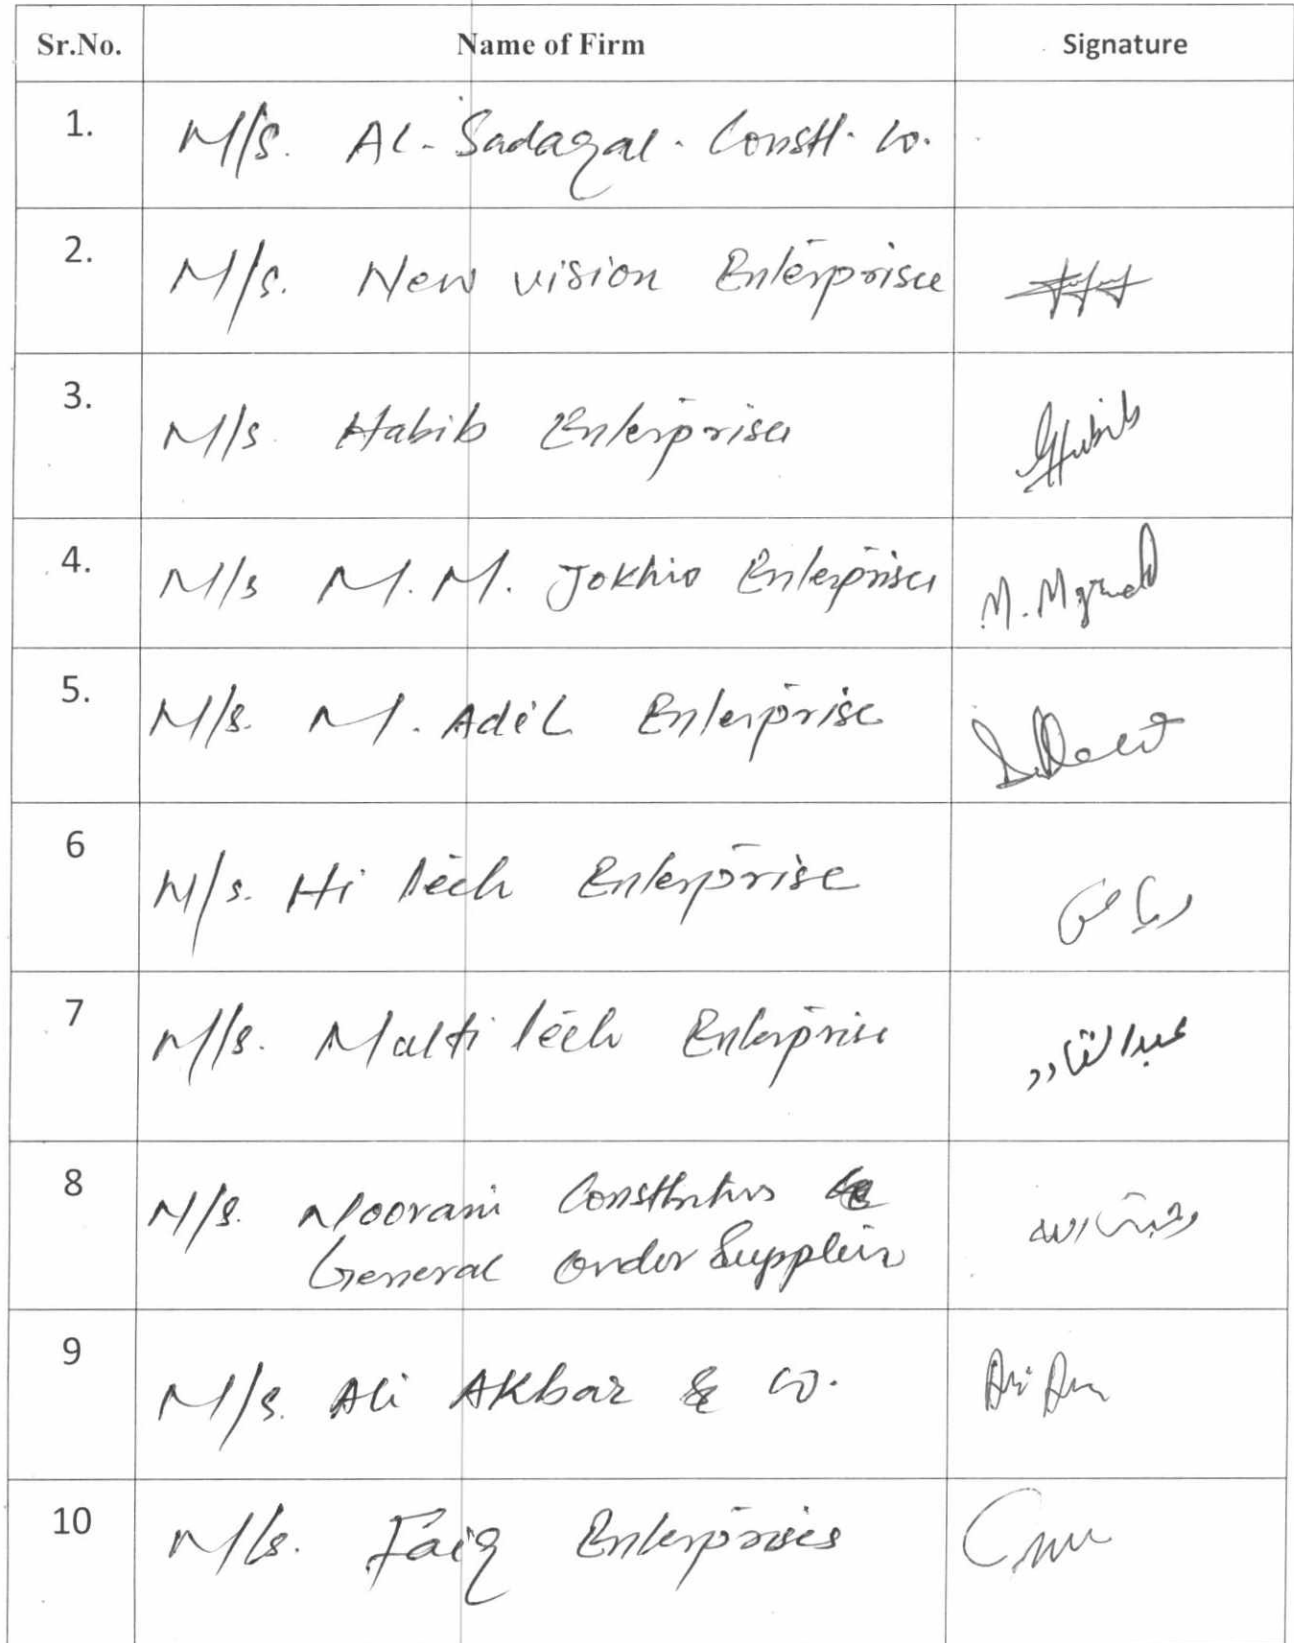 Sr.No. Name of Firm Signature
1. M/s. Al-Sadaqat. Constt. Co.
2. M/s. New vision Enterprises
3. M/s. Habib Enterprises Habib
4. M/s M.M. Jokhio Enterprises
5. M/s. M. Adil Enterprise
6 M/s. Hi tech Enterprise
7 M/s. Multi tech Enterprise عبدالقادر
8 M/s. Noorani &
General order Suppliers
9 M/s. Ali Akbar & Co.
10 M/s. Faiq Enterprises